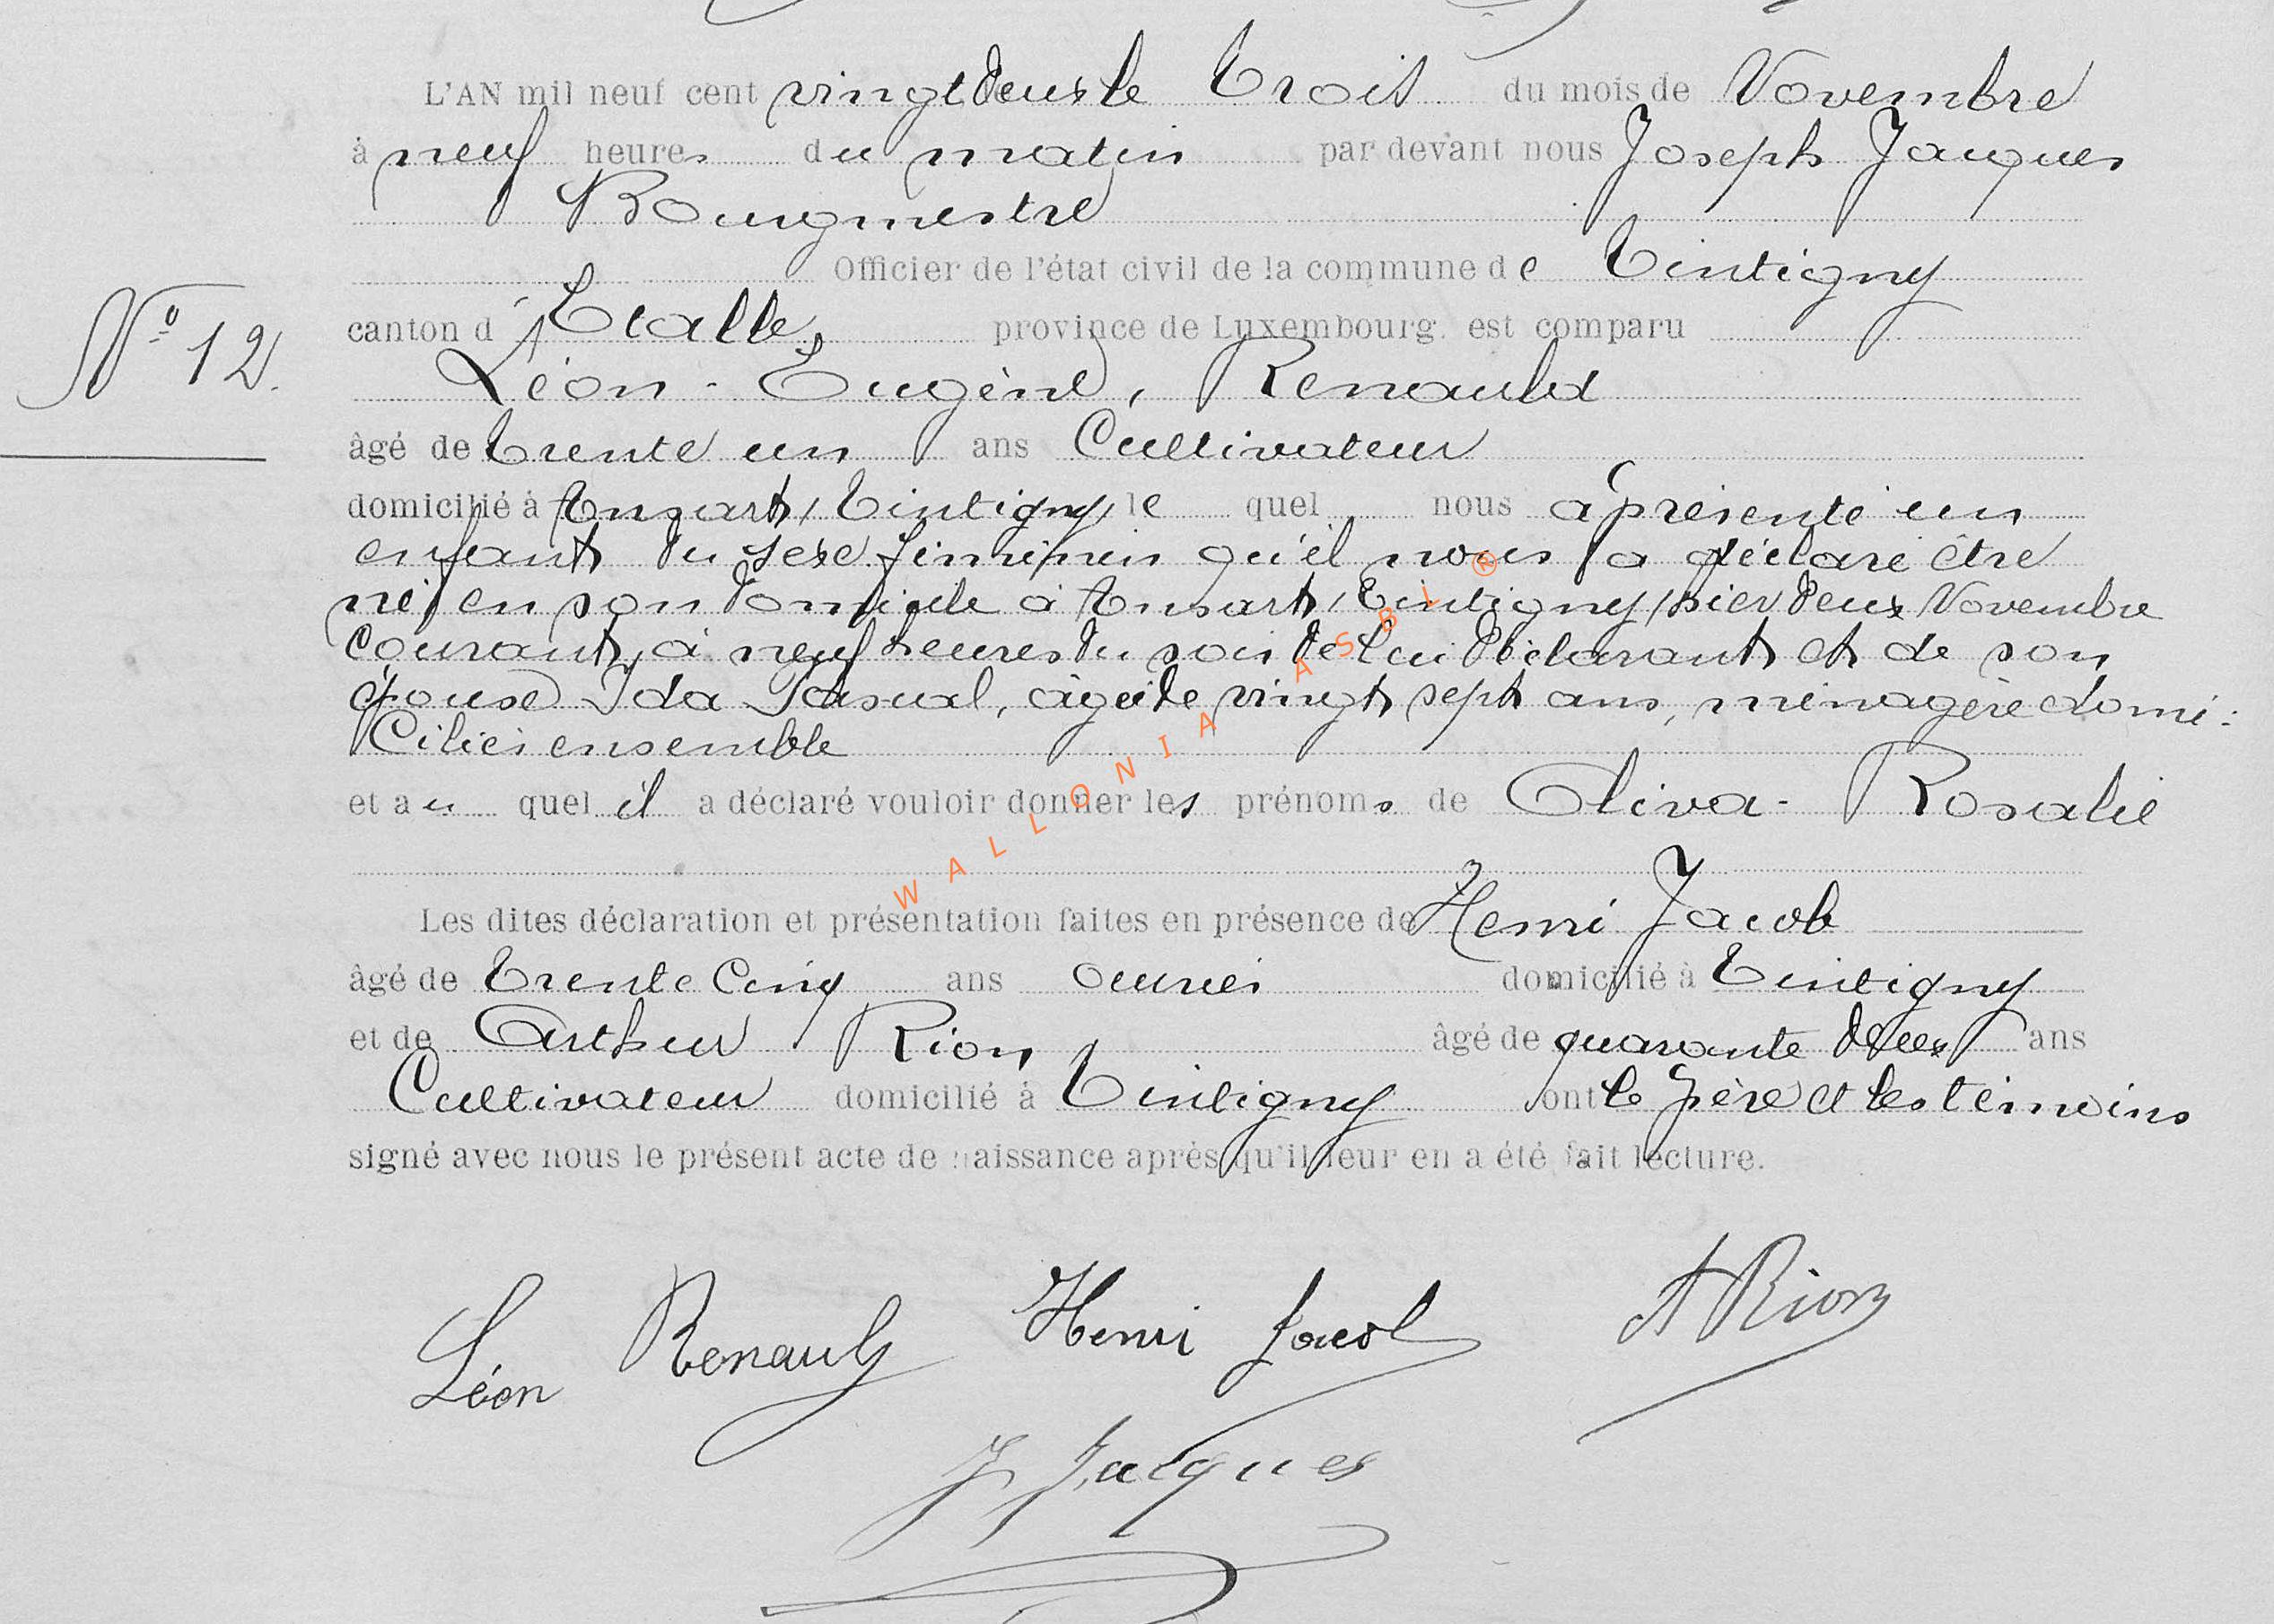 L'AN mil neuf cent vingt deux le Trois du mois de Novembre
à neuf heures du matin par devant nous Joseph Jacques
Bourgmestre
Officier de l'état civil de la commune de Tintigny
canton d'Etalle, province de Luxembourg. est comparu
N° 12.
Léon - Eugène, Renauld
âgé de Trente un ans Cultivateur
domicilié à Ansart, Tintigny, le quel nous a présenté un
enfant du sexe féminin qu'il nous a déclaré être
né en son domicile à Ansart, Tintigny, hier deux Novembre
courant, à neuf heures du soir de lui déclarant et de son
épouse Ida Pasual, âgée de vingt sept ans, ménagère domi:
Ciliés ensemble
et au quel il a déclaré vouloir donner les prénoms de Oliva - Rosalie
Les dites déclaration et présentation faites en présence de Henri Jacob
âgé de Trente Cinq ans ouvrier domicilié à Tintigny
et de Arthur Rion, âgé de quarante deux ans
Cultivateur domicilié à Tintigny ont le père et les témoins
signé avec nous le présent acte de naissance après qu'il leur en a été fait lecture.
Léon Renauld Henri Jacob A Rion
J Jacques
WALLONIA ASBL ®